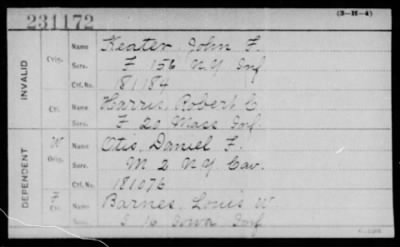 231172
(3-H-4)
INVALID
Orig.
Name Keater, John F.
Serv. F 156 N.Y. Inf.
Ctf. No. 181184
Ctf.
Name Harris, Robert C
Serv. F 20 Mass Inf.
DEPENDENT
W
Orig.
Name Otis, Daniel F.
Serv. M 2 N.Y. Cav.
Ctf. No. 181076
Ctf.
Name Barnes, Louis W
Serv. I 16 Iowa Inf